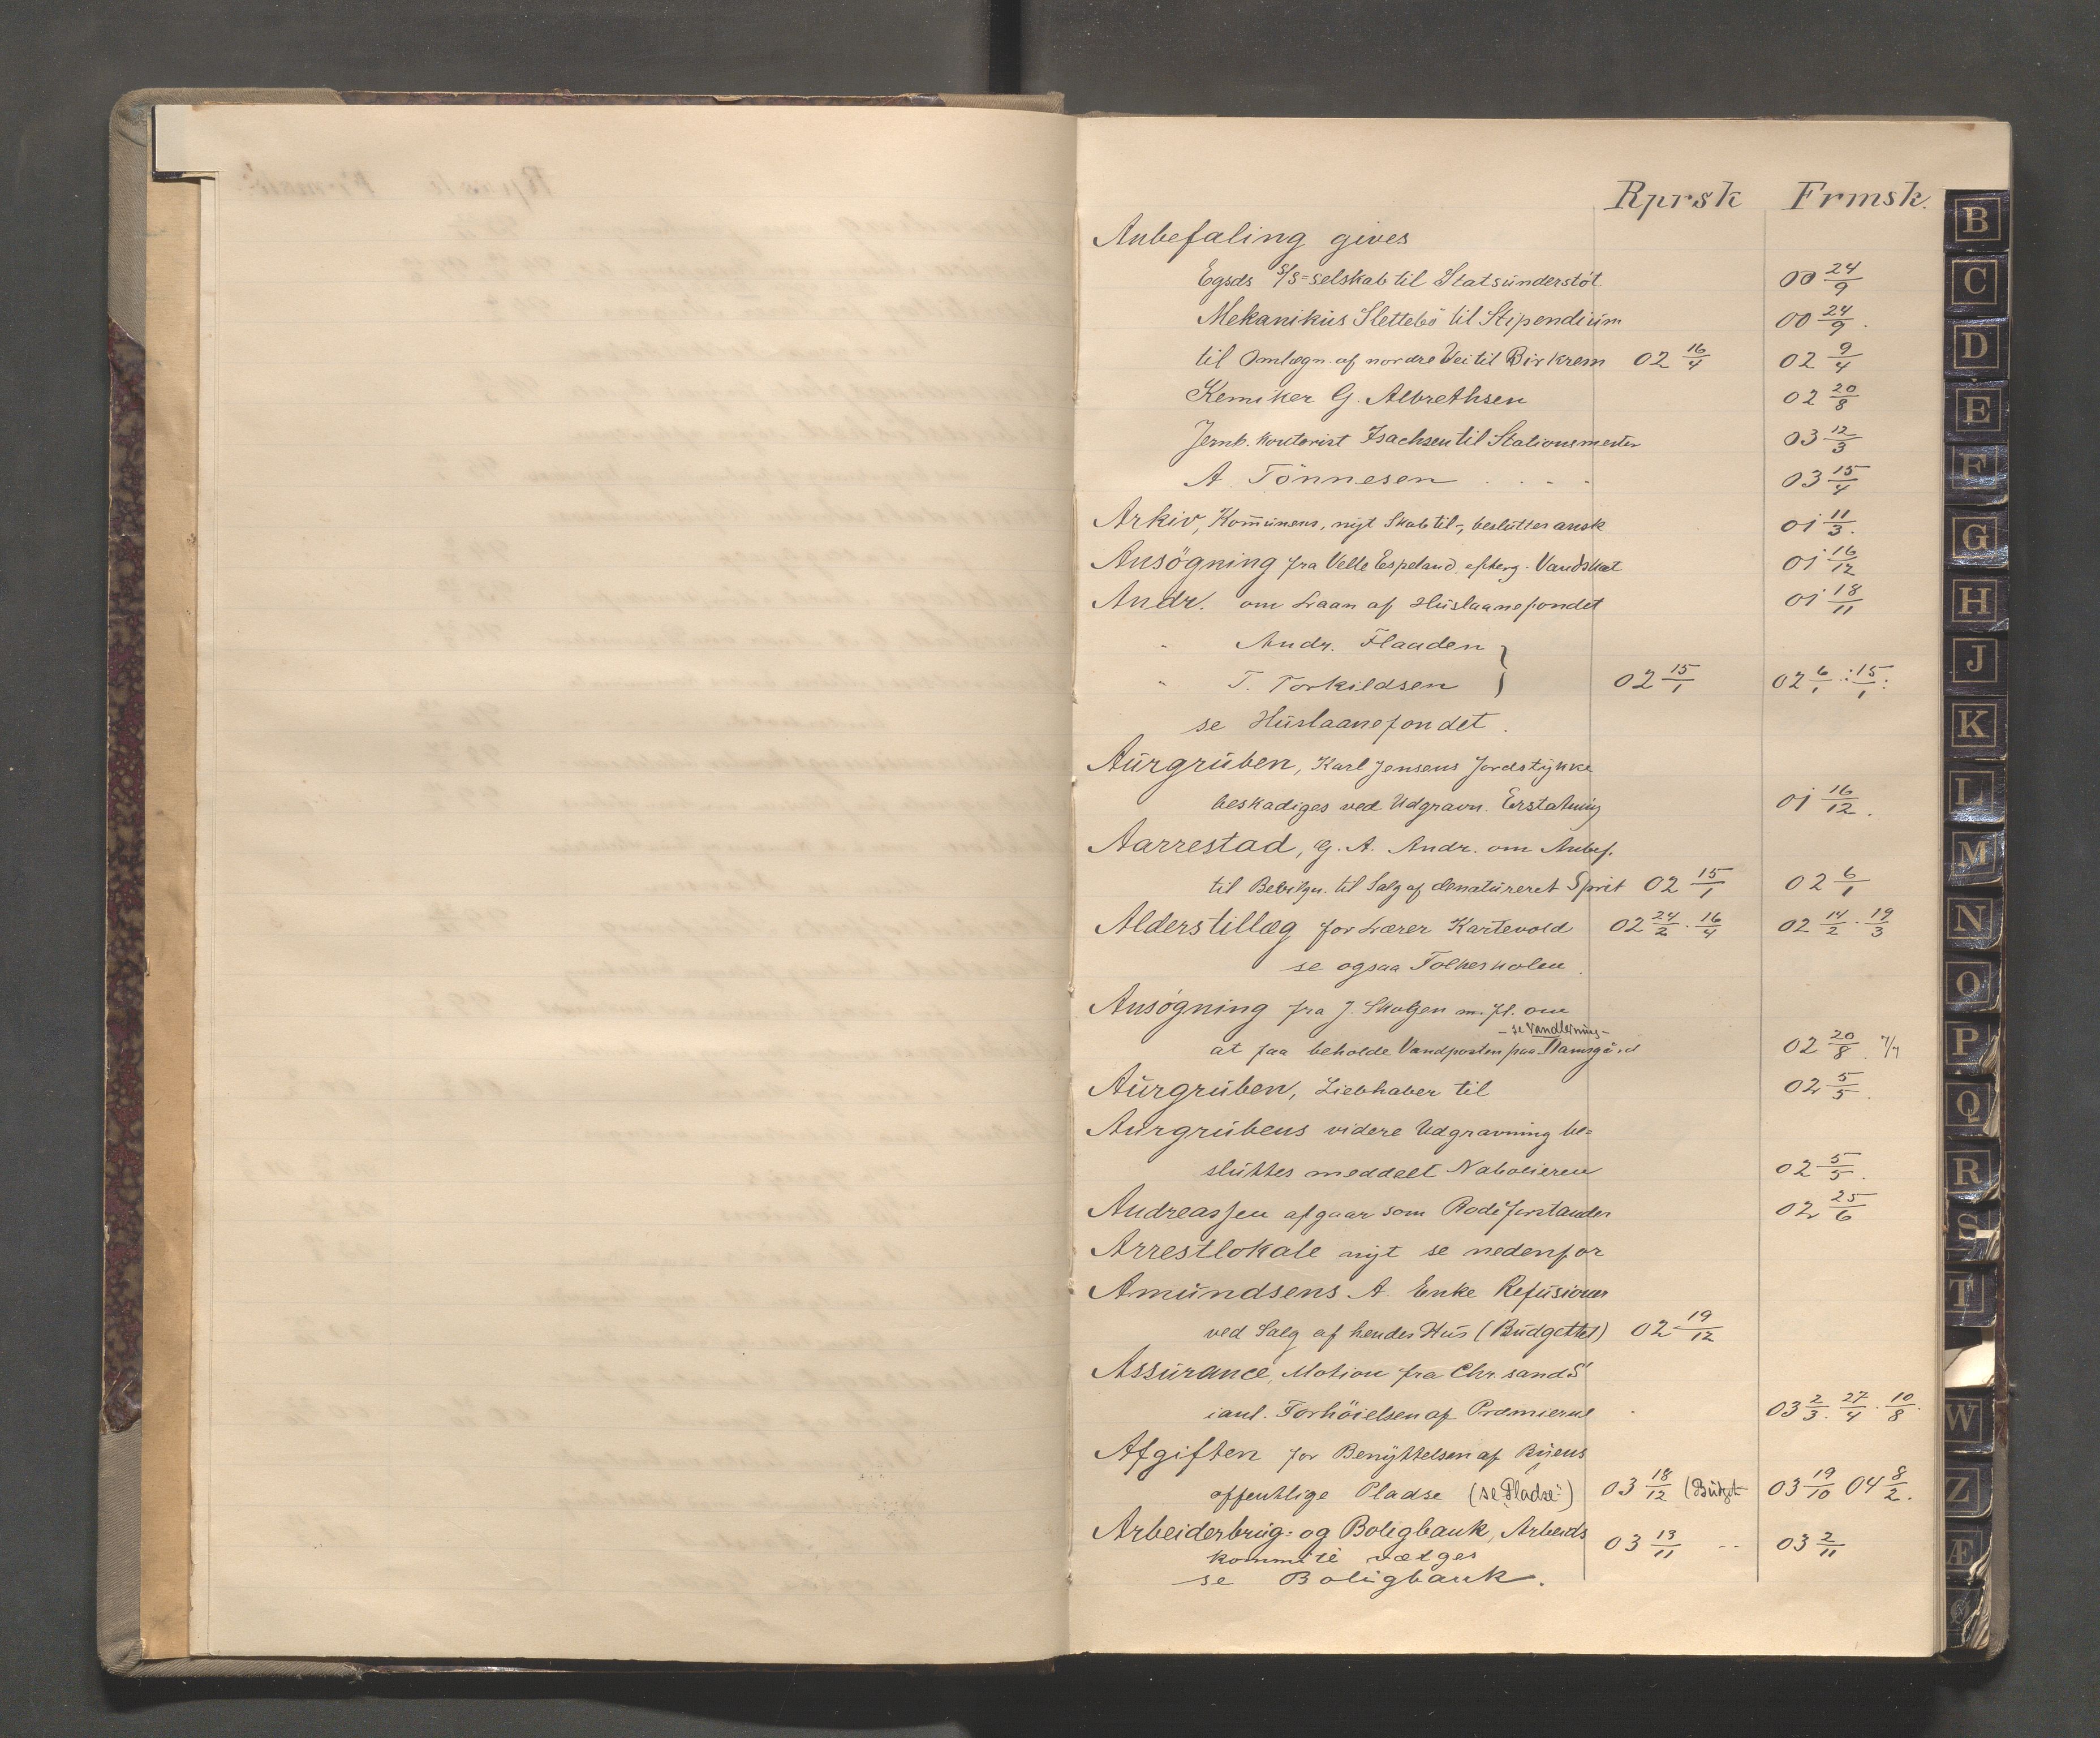 Rprsk Frmsk.
Anbefaling gives
Egsds S/S=selskab til Statsunderstöt. 00 24/9
Mekanikus Slettebö til Stipendium 00 24/9.
til Omlægn. af nordre Vei til Birkrem 02 16/4 02 9/4
Kemiker G. Albrethsen 02 20/8
Jernb. kontorist Isachsen til Stationsmester 03 12/3
A Tönnesen . - - - 03 15/4
Arkiv, Kommunens, nyt Skab til-, beslutter ansk 01 11/3.
Ansögning fra Velle Espeland efterg. Vandskat 01 16/12
Andr. om Laan af Huslaanefondet 01 18/11
" Andr. Flaaden }
" T. Torkildsen } 02 15/1 02 6/1 : 15/1 :
se Huslaanefondet.
Aurgruben, Karl Jensens Jordstykke
beskadiges ved Udgravn. Erstatning 01 16/12.
Aarrestad, G. A. Andr. om Anbef.
til Bevilgn. til Salg af denatureret Sprit 02 15/1 02 6/1
Alderstillæg for Lærer Kartevold 02 24/2 . 16/4 02 14/2 . 19/3
se ogsaa Folkeskolen.
Ansøgning fra J. Skolgen m. fl. om
- se Vandledning -
at faa beholde Vandposten paa Damsgård 02 20/8.
Aurgruben, Liebhaber til 02 5/5.
Aurgrubens videre Udgravning be=
sluttes meddelt Naboeieren 02 5/5.
Andreassen afgaar som Rodeforstander 02 25/6
Arrestlokale nyt se nedenfor
Amundsens A. Enke Refusioner
ved Salg af hendes Hus (Budgettet) 02 19/12
Assurance, Motion fra Chr.sandS
ianl. Forhöielsen af Præmierne 03 2/3. 27/4 . 10/8.
Afgiften for Benyttelsen af Byens
offentlige Pladse (se "Pladse") 03 18/12 (Budget 03 19/10 04 8/2.
Arbeiderbrug= og Boligbank, Arbeids 03 13/11 -- 03 2/11
kommite vælges
se Boligbank.
B
C
D
E
F
G
H
J
K
L
M
N
O
P
Q
R
S
T
W
Z
Æ
Ø